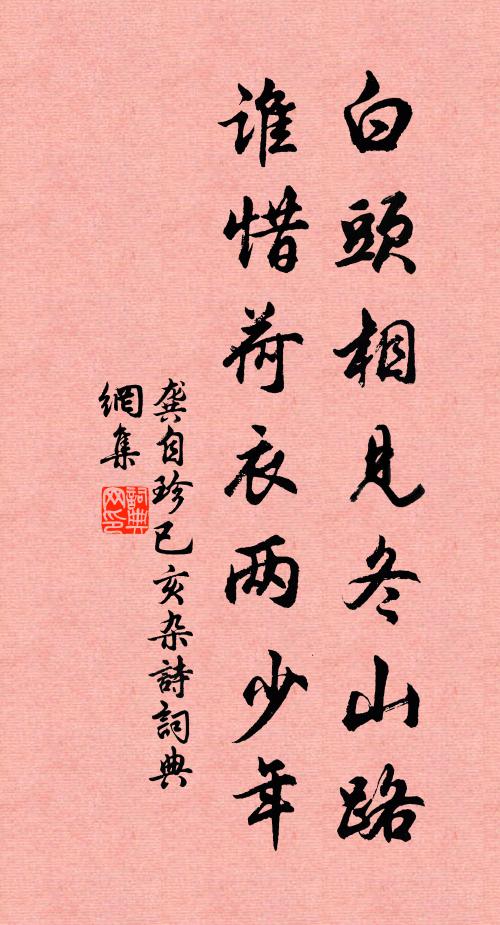 白頭相見冬山路
誰惜荷衣两少年
龔自珍已亥杂詩詞典
網集
詞典
网印